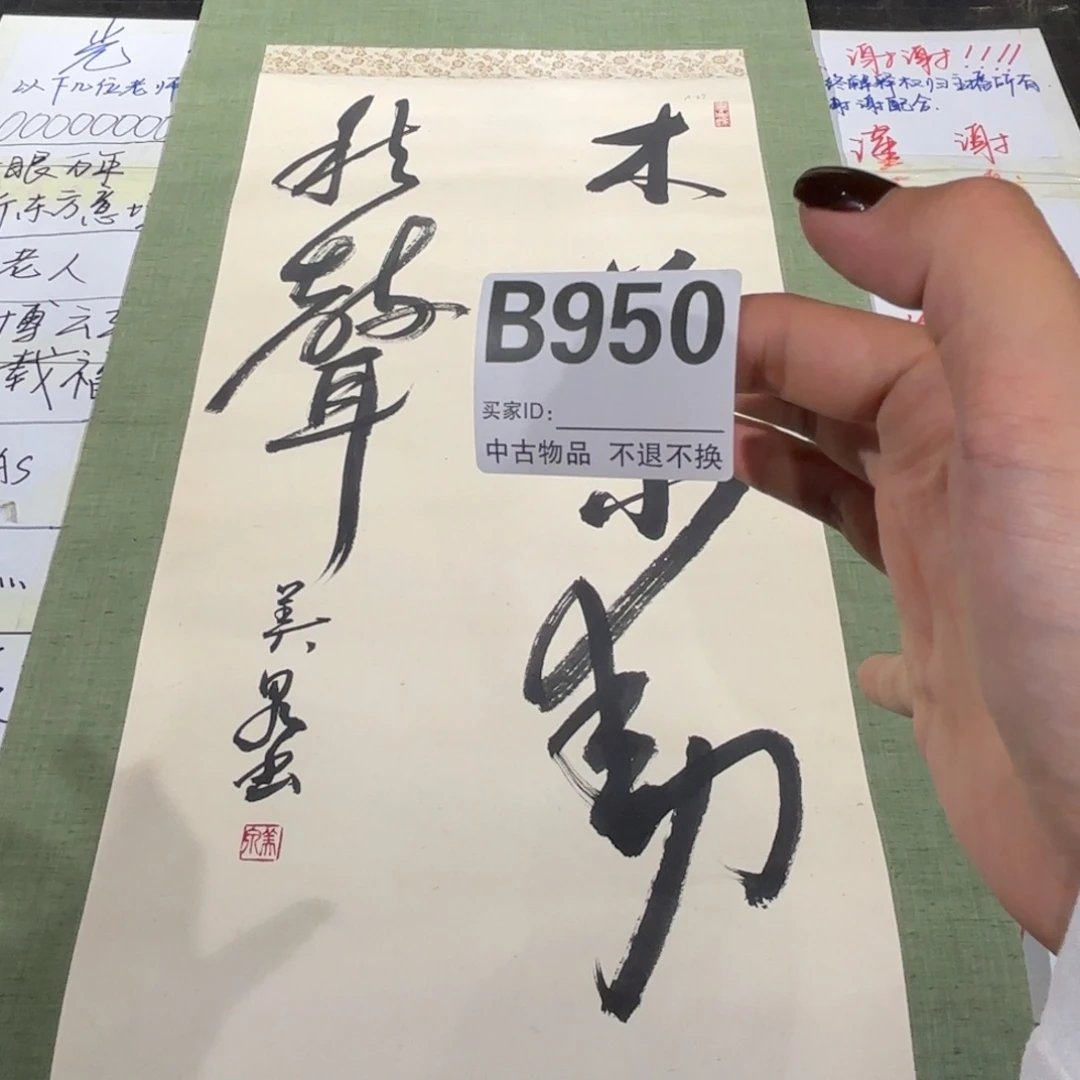 木葉動
秋聲
美泉書
B950
买家ID:
中古物品 不退不换
以下几位老师
眼万年
东方意
老人
博云
载福
谢谢!!!!
终解释权归主播所有
谢谢配合
谨 谢